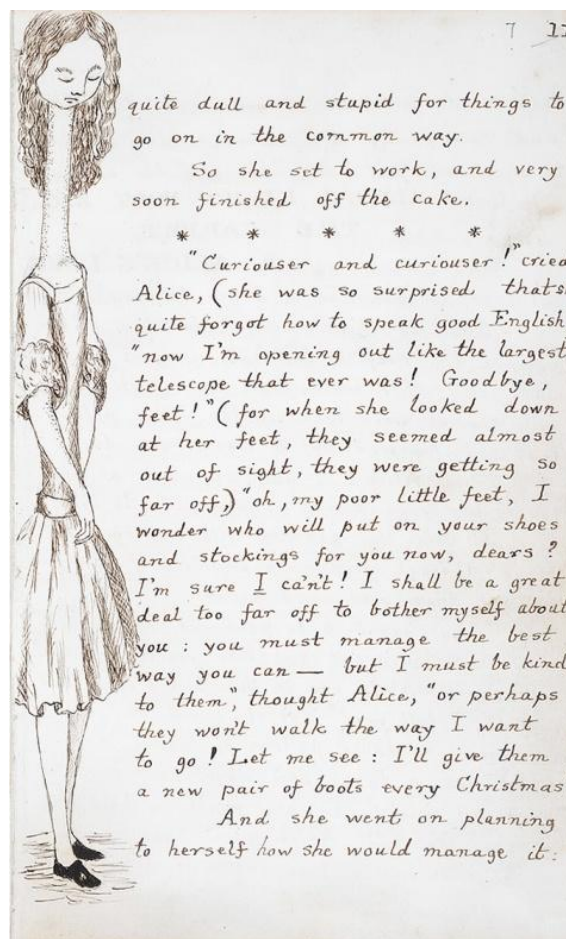 7
quite dull and stupid for things to
go on in the common way.
So she set to work, and very
soon finished off the cake.
* * * * *
"Curiouser and curiouser!" cried
Alice, (she was so surprised that s
quite forgot how to speak good English
"now I'm opening out like the largest
telescope that ever was! Goodbye,
feet!" (for when she looked down
at her feet, they seemed almost
out of sight, they were getting so
far off,) "oh, my poor little feet, I
wonder who will put on your shoes
and stockings for you now, dears?
I'm sure I ca'n't! I shall be a great
deal too far off to bother myself about
you: you must manage the best
way you can — but I must be kind
to them", thought Alice, "or perhaps
they won't walk the way I want
to go! Let me see: I'll give them
a new pair of boots every Christmas
And she went on planning
to herself how she would manage it: